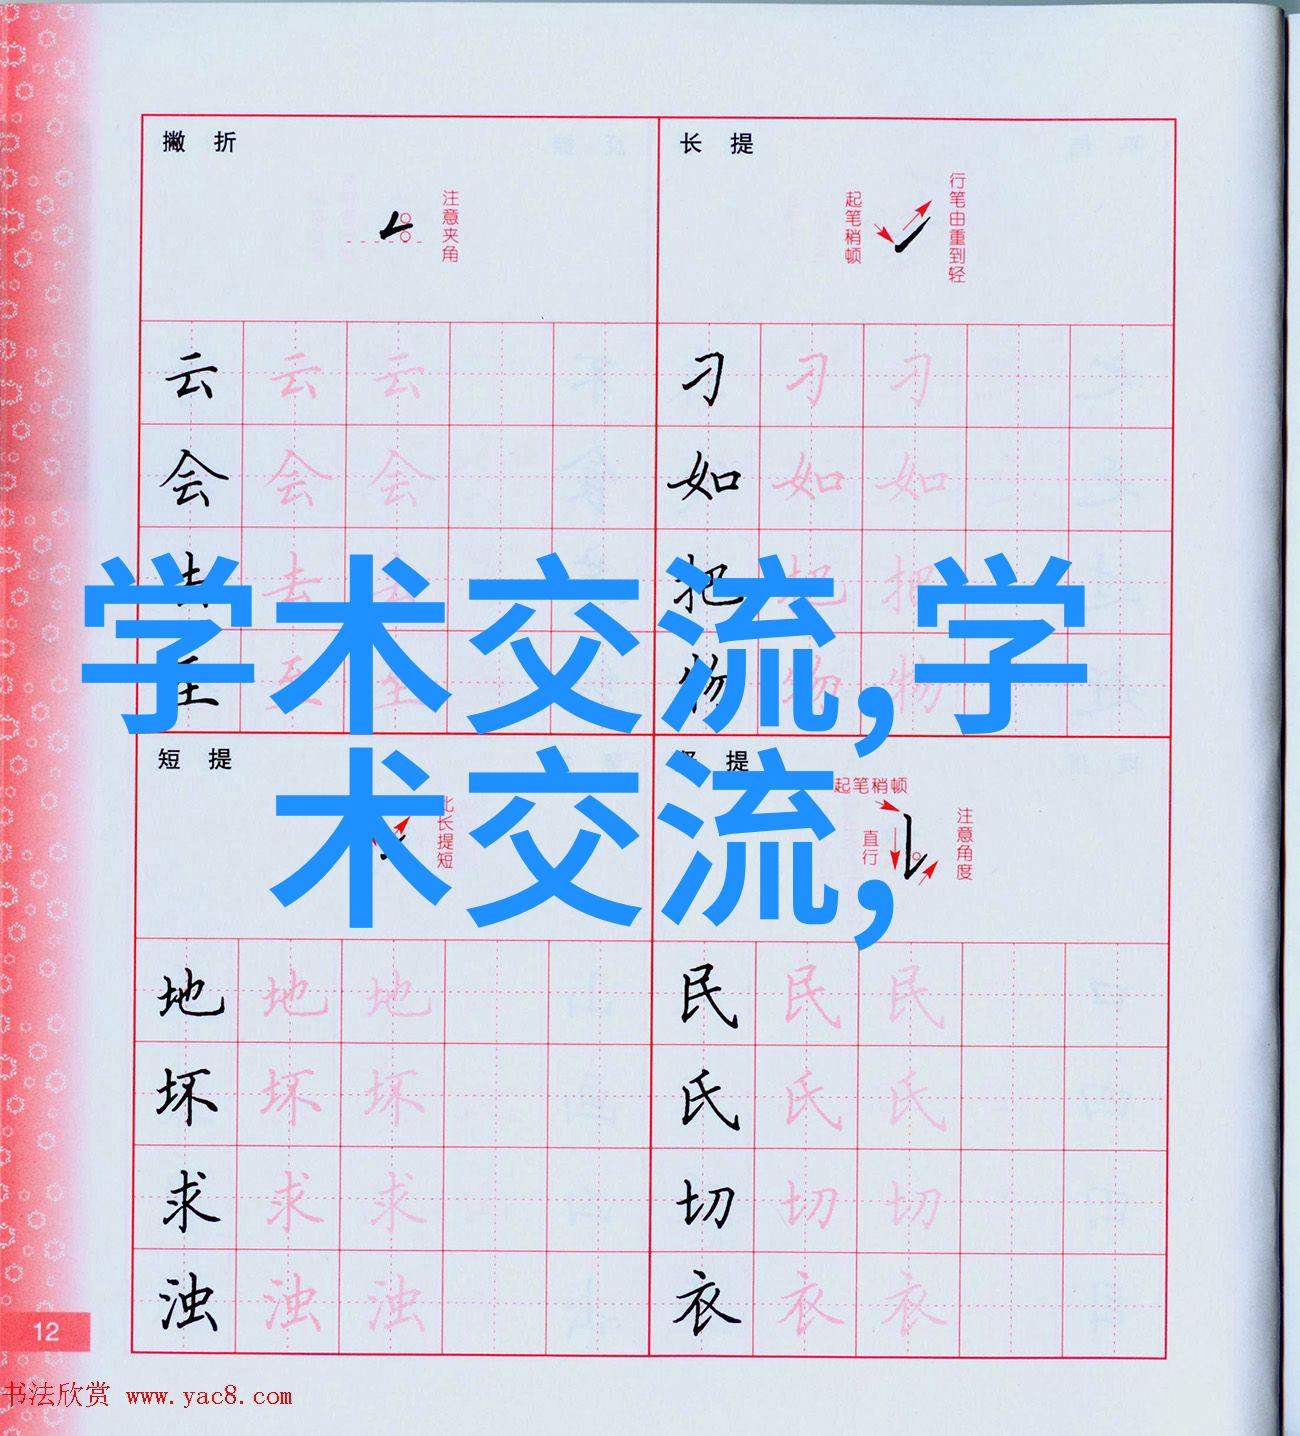 撇折
注意夹角
长提
起笔稍顿
行笔由重到轻
云 云 云
刁 刁 刁
会 会 会
如 如 如
去 去 去
把 把 把
至 至 至
物 物 物
学术交流,学
术交流,
短提
比长提短
竖提
起笔稍顿
直行
注意角度
地 地 地
民 民 民
坏 坏 坏
氏 氏 氏
求 求 求
切 切 切
浊 浊 浊
衣 衣 衣
12
书法欣赏 www.yac8.com